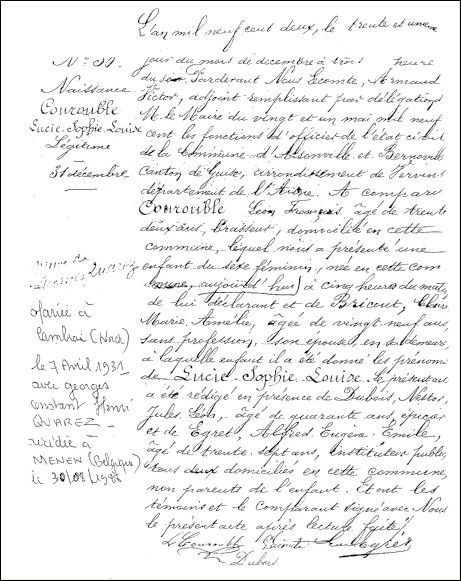 L'an mil neuf cent deux, le trente et unieme
jour du mois de décembre à trois heure
du soir Pardevant Nous Lecomte, Armand
Victor, adjoint remplissant par délégation
M. le Maire du vingt et un mai mil neuf
cent les fonctions d'officier de l'état civil
de la Commune d'Aisonville et Bernoville
Canton de Guise, arrondissement de Vervins
département de l'Aisne. A comparu
Courouble Léon François âgé de trente
deux ans, brasseur, domicilié en cette
commune, lequel nous a présenté une
enfant du sexe féminin, née en cette com
mune, aujourd'hui à cinq heures du matin
de lui déclarant et de Bricout,
Marie, Amélie, âgée de vingt neuf ans
sans profession, son épouse, en sa demeure,
à laquelle enfant il a été donné les prénoms
de Lucie-Sophie-Louise. le présent acte
a été rédigé en présence de Dubois, Nestor,
Jules, Léon, âgé de quarante ans, épicier
et de Egret, Alfred Eugène Emile,
âgé de trente sept ans, instituteur public
tous deux domiciliés en cette commune,
non parents de l'enfant. Et ont les
témoins et le comparant signé avec Nous
le présent acte après lecture faite
L Courouble Lecomte Egret
Dubois
Naissance
Courouble
Lucie-Sophie-Louise
Légitime
31 décembre
Quarez
Mariée à
Cambrai (Nord)
le 7 Avril 1931
avec georges
constant Henri
QUAREZ
décédée à
MENEN (Belgique)
le